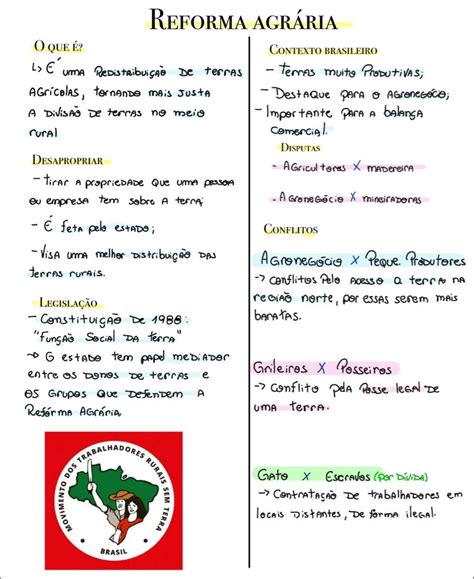 REFORMA AGRÁRIA
O QUE É?
↳ É UMA REDISTRIBUIÇÃO DE TERRAS
AGRÍCOLAS, TORNANDO MAIS JUSTA
A DIVISÃO DE TERRAS NO MEIO
RURAL
DESAPROPRIAR
- TIRAR A PROPRIEDADE QUE UMA PESSOA
OU EMPRESA TEM SOBRE A TERRA;
- É FETA PELO ESTADO;
- VISA UMA MELHOR DISTRIBUIÇÃO DAS
TERRAS RURAIS.
LEGISLAÇÃO
- CONSTITUIÇÃO DE 1988:
"FUNÇÃO SOCIAL DA TERRA"
→ O ESTADO TEM PAPEL MEDIADOR
ENTRE OS DONOS DE TERRAS E
OS GRUPOS QUE DEFENDEM A
REFORMA AGRÁRIA.
MOVIMENTO DOS TRABALHADORES RURAIS SEM TERRA
BRASIL
CONTEXTO BRASILEIRO
- TERRAS MUITO PRODUTIVAS;
- DESTAQUE PARA O AGRONEGÓCIO;
- IMPORTANTE PARA A BALANÇA
COMERCIAL.
DISPUTAS
- AGRICULTORES X MADEREIRA
- AGRONEGÓCIO X MINERADORAS
CONFLITOS
AGRONEGÓCIO X PEQUE. PRODUTORES
→ CONFLITOS PELO ACESSO A TERRA NA
REGIÃO NORTE, POR ESSAS SEREM MAIS
BARATAS.
GRILEIROS X POSSEIROS
→ CONFLITO PELA POSSE LEGAL DE
UMA TERRA.
GATO X ESCRAVOS (POR DÍVIDA)
→ CONTRATAÇÃO DE TRABALHADORES EM
LOCAIS DISTANTES, DE FORMA ILEGAL.